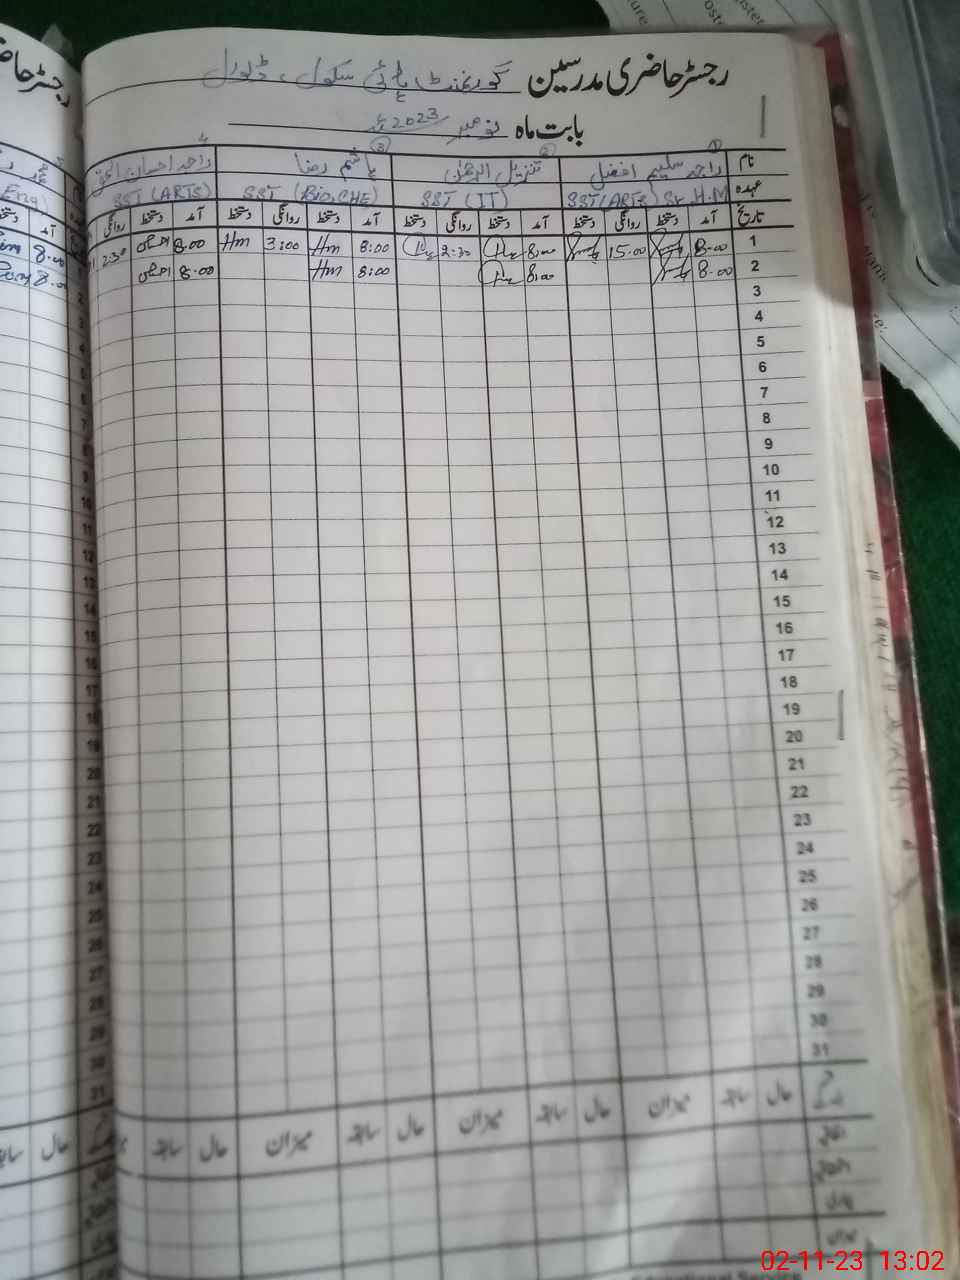 رجسٹر حاضری مدرسین گورنمنٹ ہائی سکول، ڈلورل
بابت ماہ نومبر 2023ء
نام ① راجہ سلیم افضل ② تنزیل الرحمٰن ③ ہاشم رضا 4 راجہ احسان الحق
عہدہ SST(ARTS) Sr. H.M SST (IT) SST (BIO.CHE) SST (ARTS)
تاریخ آمد دستخط روانگی دستخط آمد دستخط روانگی دستخط آمد دستخط روانگی دستخط آمد دستخط روانگی
1 8-00 15-00 8:00 2:30 8:00 Hm 3:00 Hm 8:00 احسان 2:30
2 8-00 8:00 8:00 Hm 8:00 احسان
3
4
5
6
7
8
9
10
11
12
13
14
15
16
17
18
19
20
21
22
23
24
25
26
27
28
29
30
31
حال سابقہ میزان حال سابقہ میزان حال سابقہ میزان حال سابقہ
اتفاقیہ
میزان
02-11-23 13:02